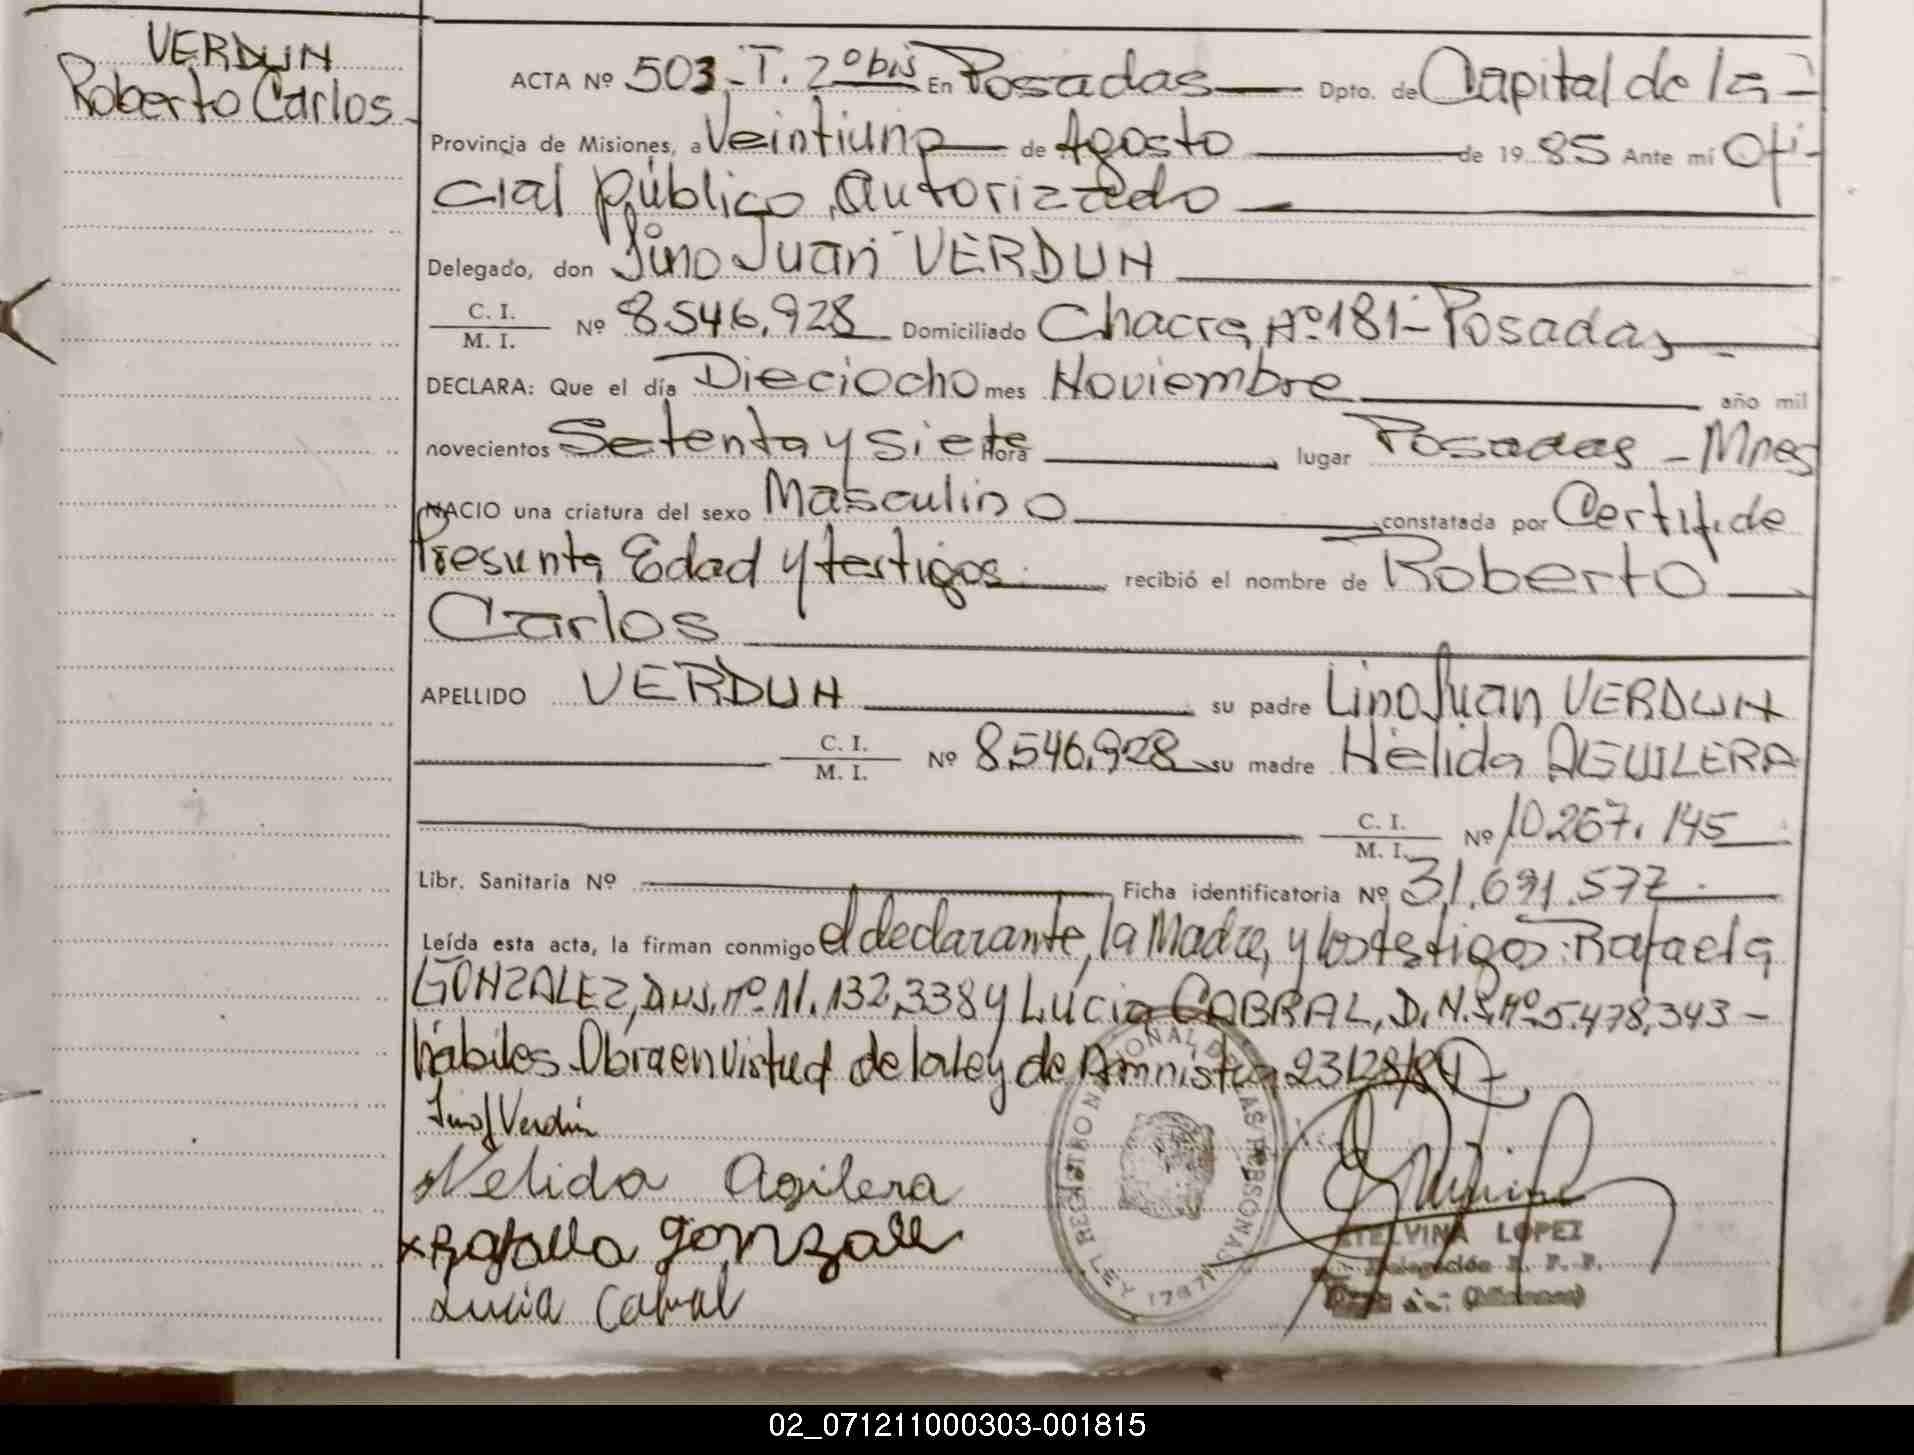 VERDUN
Roberto Carlos
ACTA Nº 503-T. 2º bis En Posadas Dpto. de Capital de la
Provincia de Misiones, a Veintiuno de Agosto de 19 85 Ante mí Ofi-
cial público autorizado
Delegado, don Lino Juan VERDUN
C. I.
M. I. Nº 8.546.928 Domiciliado Chacra Nº 181 - Posadas
DECLARA: Que el día Dieciocho mes Noviembre año mil
novecientos Setenta y siete Hora lugar Posadas - Mnes
NACIO una criatura del sexo Masculino constatada por Certif. de
Presunta Edad y testigos recibió el nombre de Roberto
Carlos
APELLIDO VERDUN su padre Lino Juan VERDUN
C. I.
M. I. Nº 8.546.928 su madre Nélida AGUILERA
C. I.
M. I. Nº 10.267.145
Libr. Sanitaria Nº Ficha identificatoria Nº 31.691.577
Leída esta acta, la firman conmigo el declarante, la Madre, y los testigos: Rafaela
GONZALEZ, D.N.I. Nº 11.132.338 y Lucia CABRAL, D.N.I. Nº 5.478.343 -
hábiles. Obra en virtud de la ley de Amnistia 23128/84
Lino J Verdún
Nelida Agilera
x Rafaela Gonzalez
Lucia Cabral
REGISTRO NACIONAL DE LAS PERSONAS
LEY 17671
ETELVINA LOPEZ
Delegación R. P. P.
(Misiones)
02_071211000303-001815